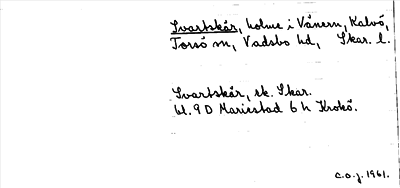 Svartskär, holme i Vänern, Kalvö,
Torsö sn, Vadsbo hd, Skar. l.
Svartskär, sk. Skar.
bl. 9 D Mariestad 6 h Krokö.
C.O.J. 1961.